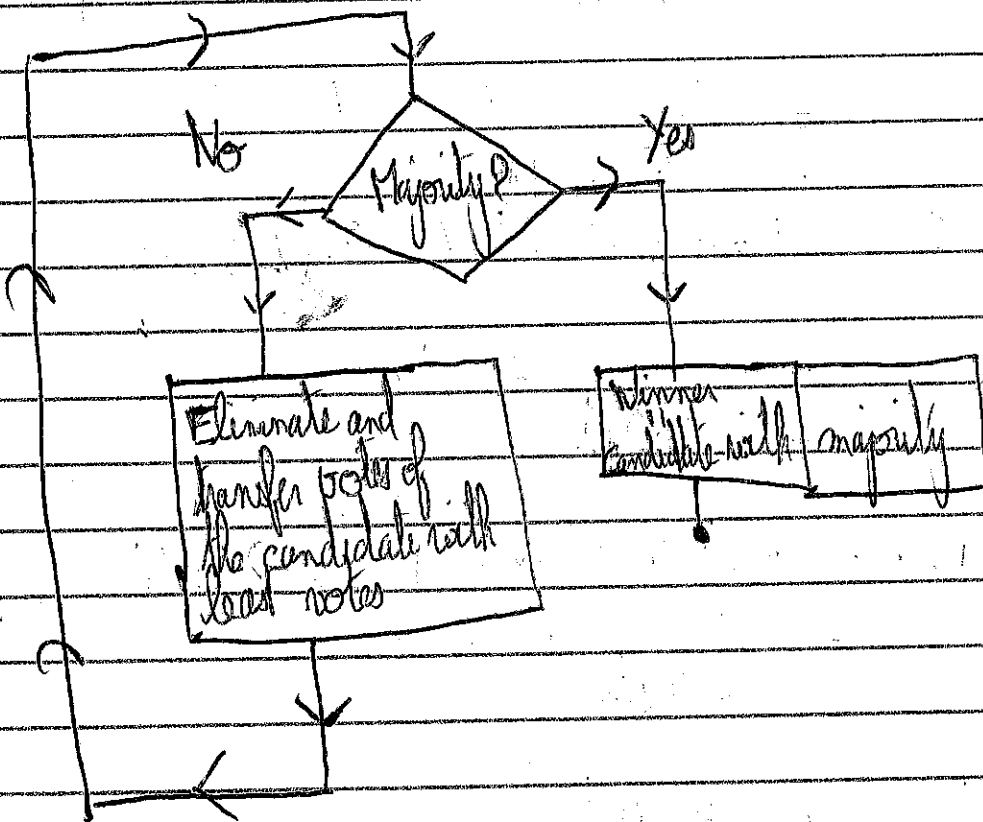 No
Yes
Majority?
Eliminate and
transfer votes of
the candidate with
least votes
Winner
"
candidate with majority